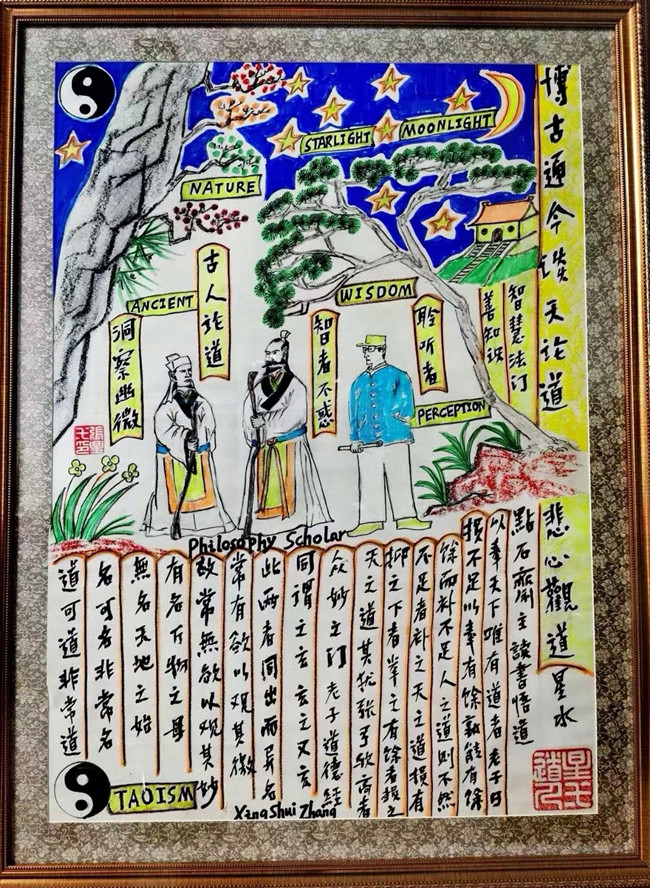 STARLIGHT
MOONLIGHT
NATURE
ANCIENT
WISDOM
PERCEPTION
博古通今谈天论道
智慧法门
善知识
聆听者
智者不惑
古人论道
洞察幽微
Philosophy Scholar
悲心觀道星水
點石齋主讀書悟道
道可道非常道
名可名非常名
無名天地之始
有名万物之母
故常無欲以观其妙
常有欲以观其徼
此两者同出而异名
同谓之玄玄之又玄
众妙之门老子道德经
天之道其犹张弓欤高者
抑之下者举之有馀者损之
不足者补之天之道损有
馀而补不足人之道则不然
损不足以奉有馀孰能有馀
以奉天下唯有道者老子曰
TAOISM
XingShui Zhang